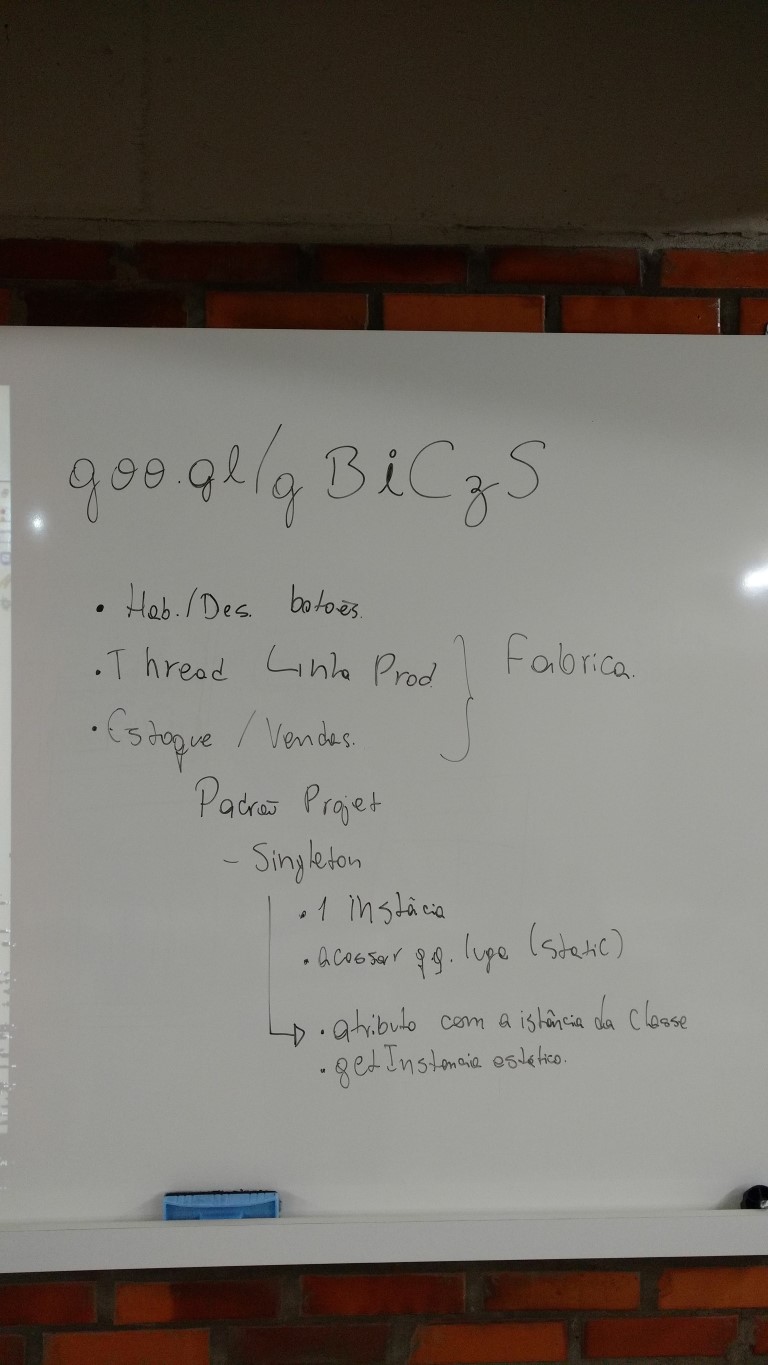 goo.gl/gBiCzS
• Hab./Des. botoẽs.
• Thread Linha Prod. } Fabrica.
• Estoque / Vendas.
Padrão Projet
- Singleton
• 1 instâcia
• acessar qq. luga (static)
• atributo com a istância da Classe
• getInstancia estático.